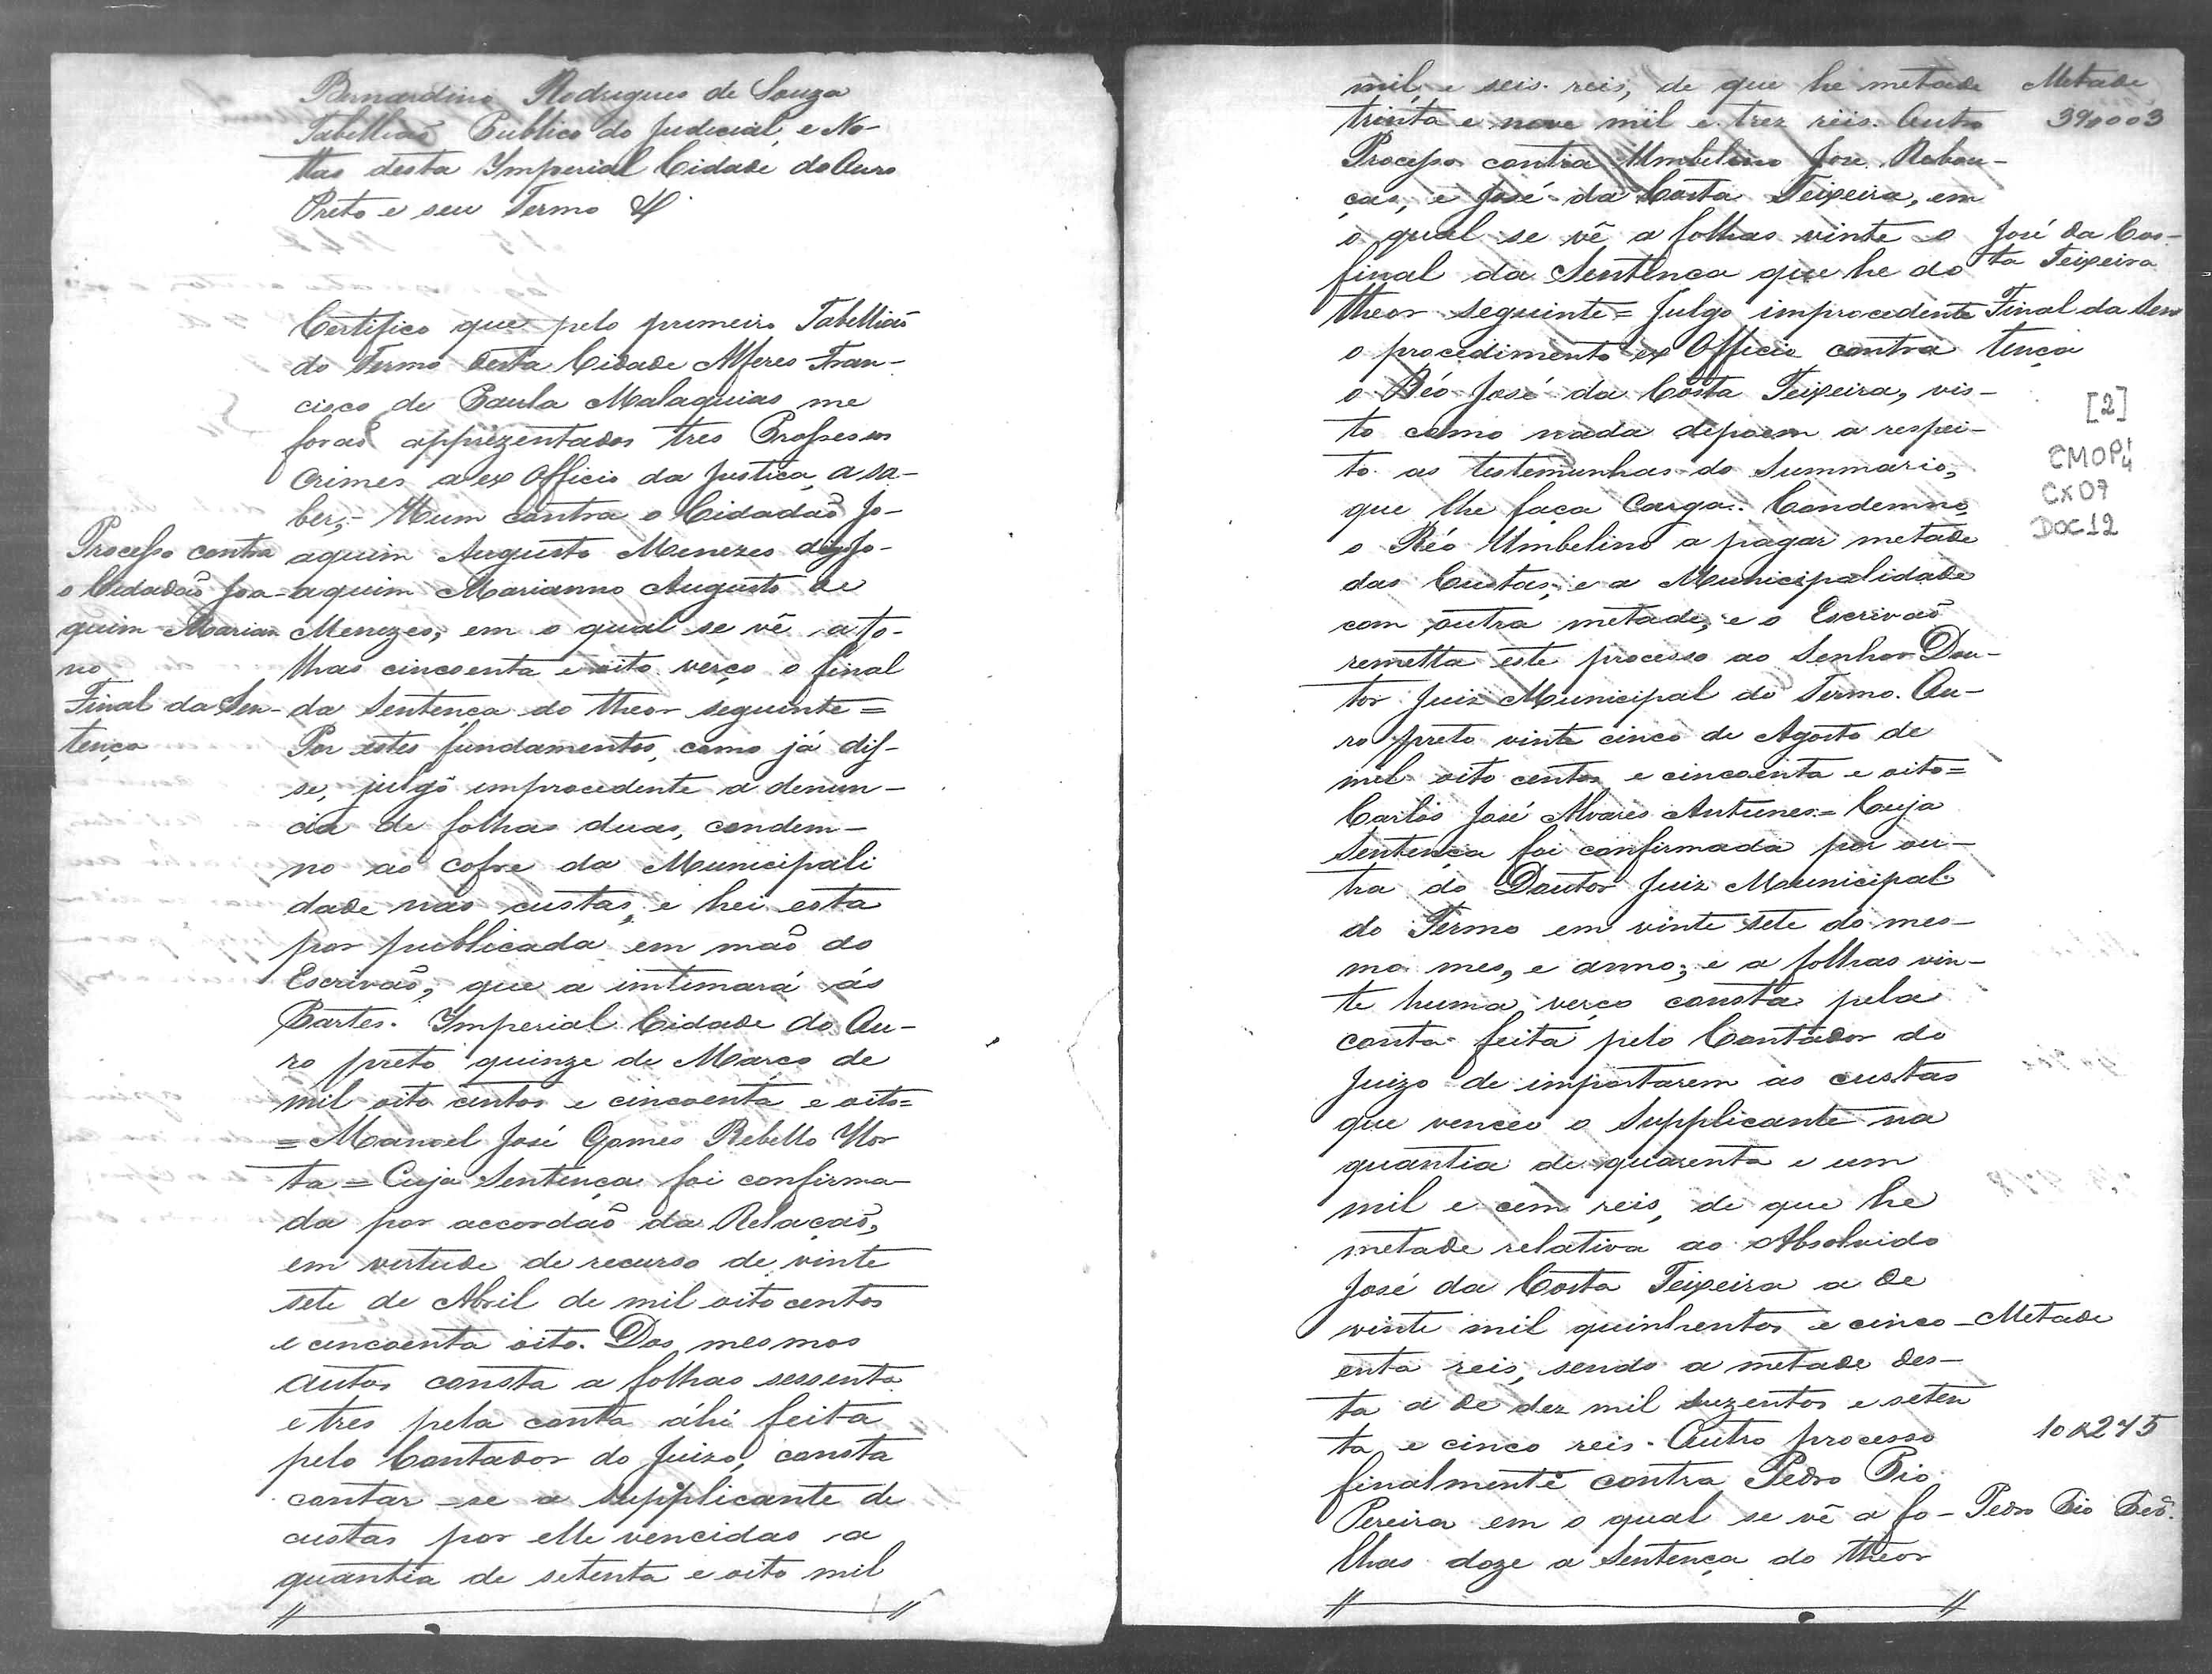 Bernardino Rodrigues de Souza
Tabelliaõ Publico do Judicial, e No-
ttas desta Imperial Cidade do Ouro
Preto e seu Termo &.
Certifico que pelo primeiro Tabelliaõ
do Termo desta Cidade Alferes Fran-
cisco de Paula Malaquias me
foraõ apprezentados tres Professos
Crimes a ex Officio da Justiça, a sa-
ber,- Hum contra o Cidadaõ Jo-
aquim Augusto Menezes digo Jo-
aquim Marianno Augusto de
Menezes, em o qual se vê a fo-
lhas cincoenta e oito verço o final
da Sentença do theor seguinte =
Por estes fundamentos, como já dis-
se, julgo improcedente a denun-
cia de folhas duas, condem-
no ao cofre da Municipali
dade nas custas, e hei esta
por publicada em maõ do
Escrivaõ, que a intimará ás
Partes. Imperial Cidade do Ou-
ro preto quinze de Março de
mil oito centos e cincoenta e oito=
= Manoel José Gomes Rebello Hor
ta = Cuja Sentença foi confirma-
da por accordaõ da Relaçaõ,
em vertude de recurso de vinte
sete de Abril de mil oito centos
e cincoenta oito. Dos mesmos
autos consta a folhas sessenta
e tres pela conta áhi feita
pelo Contador do Juizo, consta
contar-se a Supplicante de
custas por elle vencidas a
quantia de setenta e oito mil
Processo contra
o Cidadaõ Joa-
quim Marian
no
Final da Sen-
tença
mil, e seis reis, de que he metade
trinta e nove mil e trez reis. Outro
Processo contra Umbelino José Rabou-
ças, e José da Costa Teixeira, em
o qual se vê a folhas vinte o
final da Sentença que he do
theor seguinte= Julgo improcedente
o procedimento ex Officio contra
o Réo José da Costa Teixeira, vis-
to como nada depoem a respei-
to as testemunhas do Summario,
que lhe faça Carga. Condemno
o Réo Umbelino a pagar metade
das Custas, e a Municipalidade
com outra metade, e o Escrivaõ
remetta este processo ao Senhor Dou-
tor Juiz Municipal do Termo. Ou-
ro preto vinte cinco de Agosto de
mil oito centos e cincoenta e oito=
Carlos José Alvares Antunes= Cuja
Sentença foi confirmada por ou-
tra do Doutor Juiz Municipal
do Termo em vinte sete do mes-
mo mes, e anno; e a folhas vin-
te huma verço consta pela
conta feita pelo Contador do
Juizo de importarem as custas
que venceo o Supplicante na
quantia de quarenta e um
mil e cem reis, de que he
metade relativa ao Absolvido
José da Costa Teixeira a de
vinte mil quinhentos e cinco-
enta reis, sendo a metade des-
ta a de dez mil duzentos e seten
ta e cinco reis. Outro processo
finalmente contra Pedro Pio
Pereira em o qual se vê a fo-
lhas doze a Sentença do theor
Metade
39$003
José da Cos-
ta Teixeira
Final da Sen
tença
[2]
CMOP
CX07
DOC12
Metade
10$275
Pedro Pio